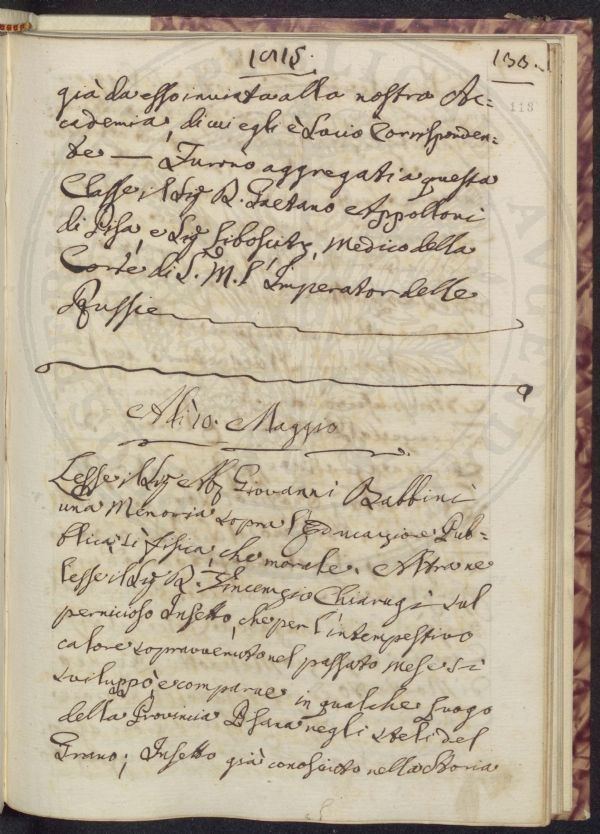 1815.
130.
118
già da esso inviata alla nostra Ac=
cademia, di cui egli è Socio Corrisponden=
te — Furono aggregati a questa
Classe il Sig. R. Gaetano Appolloni
di Pisa, e Sig. Medico della
Corte di S. M. l'Imperator delle
Russie
Alì 10. Maggio
Lesse il Sig. Ab. Giovanni Babbini
una Memoria sopra l'Educazione Pub=
blica, sì fisica, che morale. Altra ne
lesse il Sig. R. Vincenzio Chiarugi sul
pernicioso Insetto, che per l'intempestivo
calore sopravvenuto nel passato Mese si
sviluppò, e comparve in qualche Luogo
della Provincia Pisana negli steli del
Grano; Insetto già conosciuto nella Storia